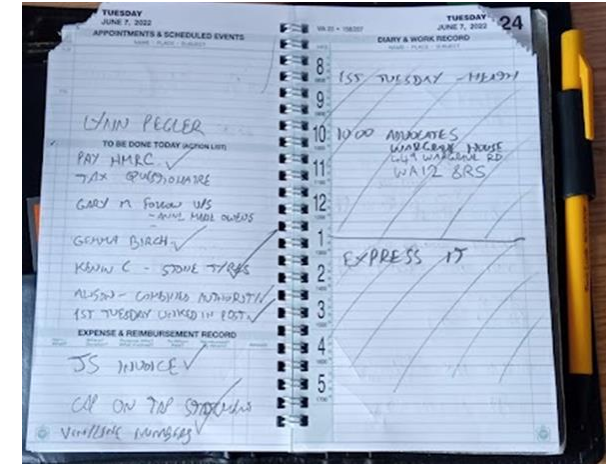 TUESDAY
JUNE 7, 2022
APPOINTMENTS & SCHEDULED EVENTS
NAME • PLACE • SUBJECT
LYNN PEGLER
TO BE DONE TODAY (ACTION LIST)
PAY HMRC
TAX QUESTIONAIRE
GARY M FOLLOW UPS
- ANNE MARIE OWENS
GEMMA BIRCH
KEVIN C - STONE TYPES
ALISON - COMBINED AUTHORITY
1ST TUESDAY LINKED IN POST
EXPENSE & REIMBURSEMENT RECORD
JS INVOICE
CAP ON TAP
NUMBERS
TUESDAY
JUNE 7, 2022
24
DIARY & WORK RECORD
NAME • PLACE • SUBJECT
8 1ST TUESDAY -
9
10 10:00 ADVOCATES
WARGRAVE HOUSE
WARGRAVE RD
11 WA12 8RS
12
1 EXPRESS IT
2
3
4
5